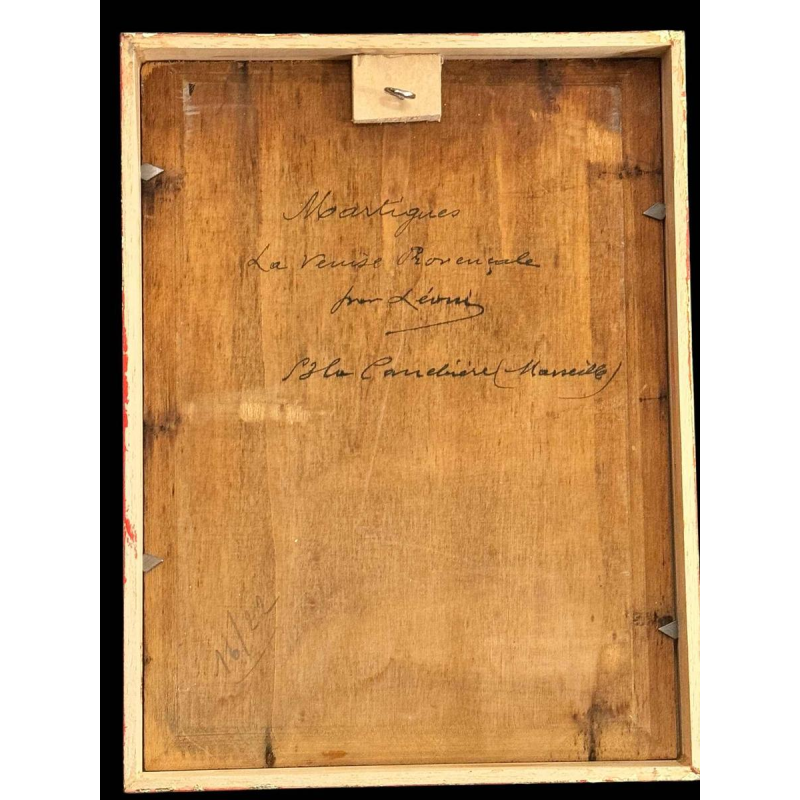 Martigues
La Venise Provençale
par Léoni
La Canebière (Marseille)
16/22